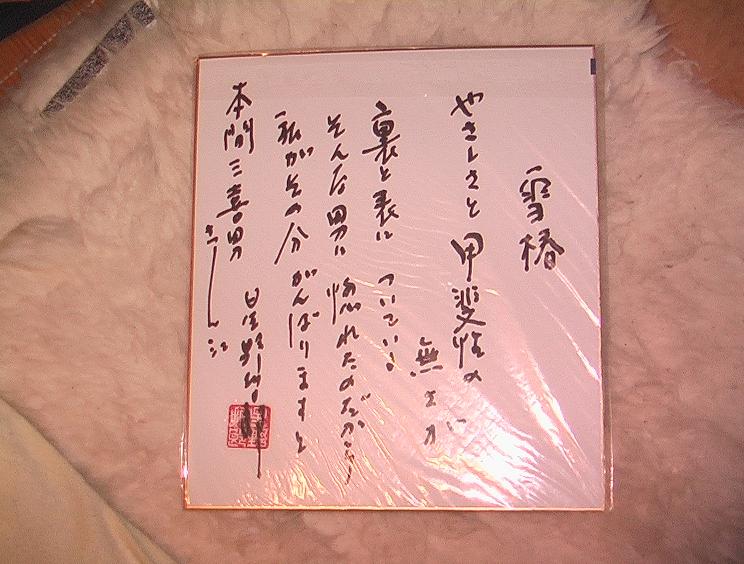 雪椿
やさしさと 甲斐性の
無さが
裏と表に ついている
そんな男に 惚れたのだから
私がその分 がんばりますと
本間三喜男
星野哲郎